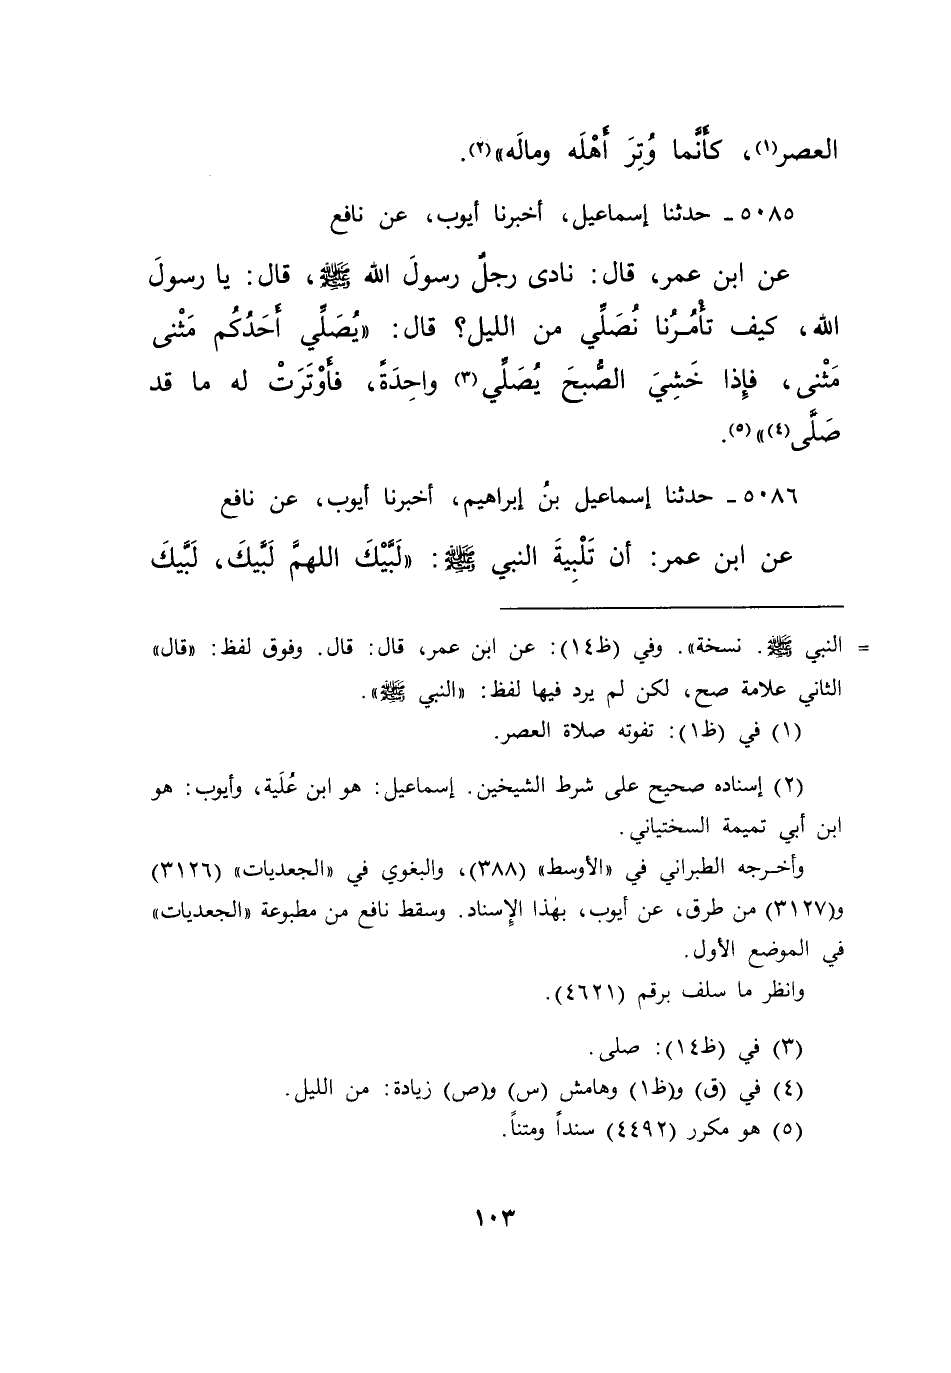 العصر(١)، كأَنَّما وُتِرَ أَهْلَه ومالَه»(٢).
٥٠٨٥ ـ حدثنا إسماعيل، أخبرنا أيوب، عن نافع
عن ابن عمر، قال: نادى رجلٌ رسولَ الله ﷺ، قال: يا رسولَ
الله، كيف تأْمُرُنا نُصَلِّي من الليل؟ قال: «يُصَلِّي أَحَدُكُم مَثْنى
مَثْنى، فإِذا خَشِيَ الصُّبحَ يُصَلِّي(٣) واحِدَةً، فأَوْتَرَتْ له ما قد
صَلَّى(٤)»(٥).
٥٠٨٦ ـ حدثنا إسماعيل بنُ إبراهيم، أخبرنا أيوب، عن نافع
عن ابن عمر: أن تَلْبِيةَ النبي ﷺ: «لَبَّيْكَ اللهمَّ لَبَّيكَ، لَبَّيكَ
= النبي ﷺ. نسخة». وفي (ظ١٤): عن ابن عمر، قال: قال. وفوق لفظ: «قال»
الثاني علامة صح، لكن لم يرد فيها لفظ: «النبي ﷺ».
(١) في (ظ١): تفوته صلاة العصر.
(٢) إسناده صحيح على شرط الشيخين. إسماعيل: هو ابن عُلَية، وأيوب: هو
ابن أبي تميمة السختياني.
وأخرجه الطبراني في «الأوسط» (٣٨٨)، والبغوي في «الجعديات» (٣١٢٦)
و(٣١٢٧) من طرق، عن أيوب، بهٰذا الإسناد. وسقط نافع من مطبوعة «الجعديات»
في الموضع الأول.
وانظر ما سلف برقم (٤٦٢١).
(٣) في (ظ١٤): صلى.
(٤) في (ق) و(ظ١) وهامش (س) و(ص) زيادة: من الليل.
(٥) هو مكرر (٤٤٩٢) سنداً ومتناً.
١٠٣